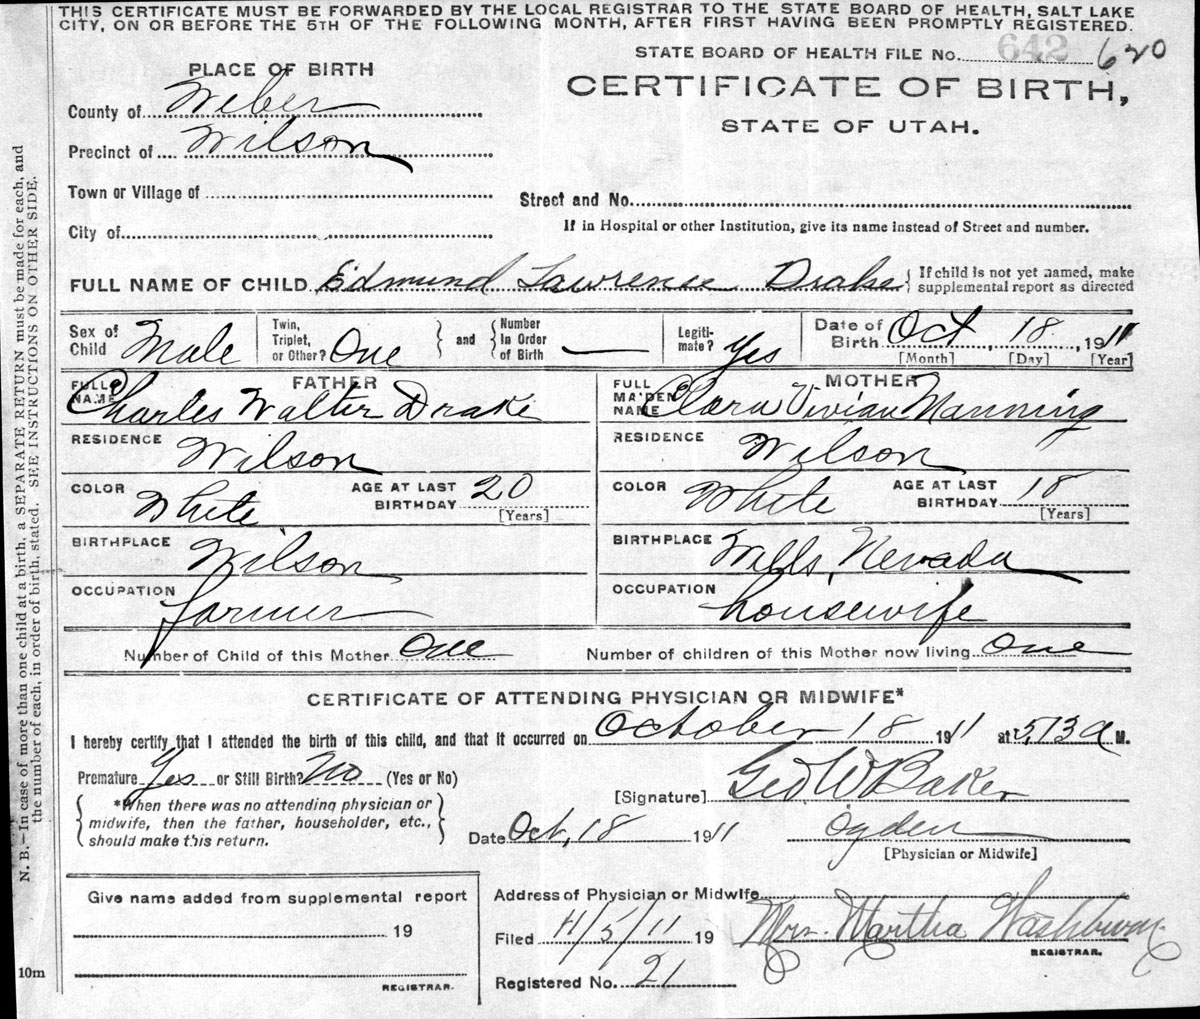 THIS CERTIFICATE MUST BE FORWARDED BY THE LOCAL REGISTRAR TO THE STATE BOARD OF HEALTH, SALT LAKE
CITY, ON OR BEFORE THE 5TH OF THE FOLLOWING MONTH, AFTER FIRST HAVING BEEN PROMPTLY REGISTERED.
STATE BOARD OF HEALTH FILE No. 642 620
PLACE OF BIRTH
CERTIFICATE OF BIRTH,
STATE OF UTAH.
County of Weber
Precinct of Wilson
Town or Village of
Street and No.
City of
If in Hospital or other Institution, give its name instead of Street and number.
FULL NAME OF CHILD Edmund Lawrence Drake { If child is not yet named, make
supplemental report as directed
Sex of Child Male
Twin, Triplet, or Other? One } and { Number In Order of Birth —
Legitimate? Yes
Date of Birth Oct, 18, 1911
[Month] [Day] [Year]
FATHER
FULL NAME Charles Walter Drake
RESIDENCE Wilson
COLOR White
AGE AT LAST BIRTHDAY 20
[Years]
BIRTHPLACE Wilson
OCCUPATION farmer
MOTHER
FULL MAIDEN NAME Clara Vivian Manning
RESIDENCE Wilson
COLOR White
AGE AT LAST BIRTHDAY 18
[Years]
BIRTHPLACE Wells, Nevada
OCCUPATION housewife
Number of Child of this Mother One
Number of children of this Mother now living One
CERTIFICATE OF ATTENDING PHYSICIAN OR MIDWIFE*
I hereby certify that I attended the birth of this child, and that it occurred on October 18 1911 at 5,13 a M.
Premature Yes or Still Birth? No (Yes or No)
*When there was no attending physician or
midwife, then the father, householder, etc.,
should make this return.
[Signature] Geo W Baker
Date Oct, 18 1911
Ogden
[Physician or Midwife]
Give name added from supplemental report
19
REGISTRAR.
Address of Physician or Midwife
Filed 11/5/11 19
Mrs. Martha Washburn
REGISTRAR.
Registered No. 21
10m
N. B.—In case of more than one child at a birth, a SEPARATE RETURN must be made for each, and
the number of each, in order of birth, stated. SEE INSTRUCTIONS ON OTHER SIDE.